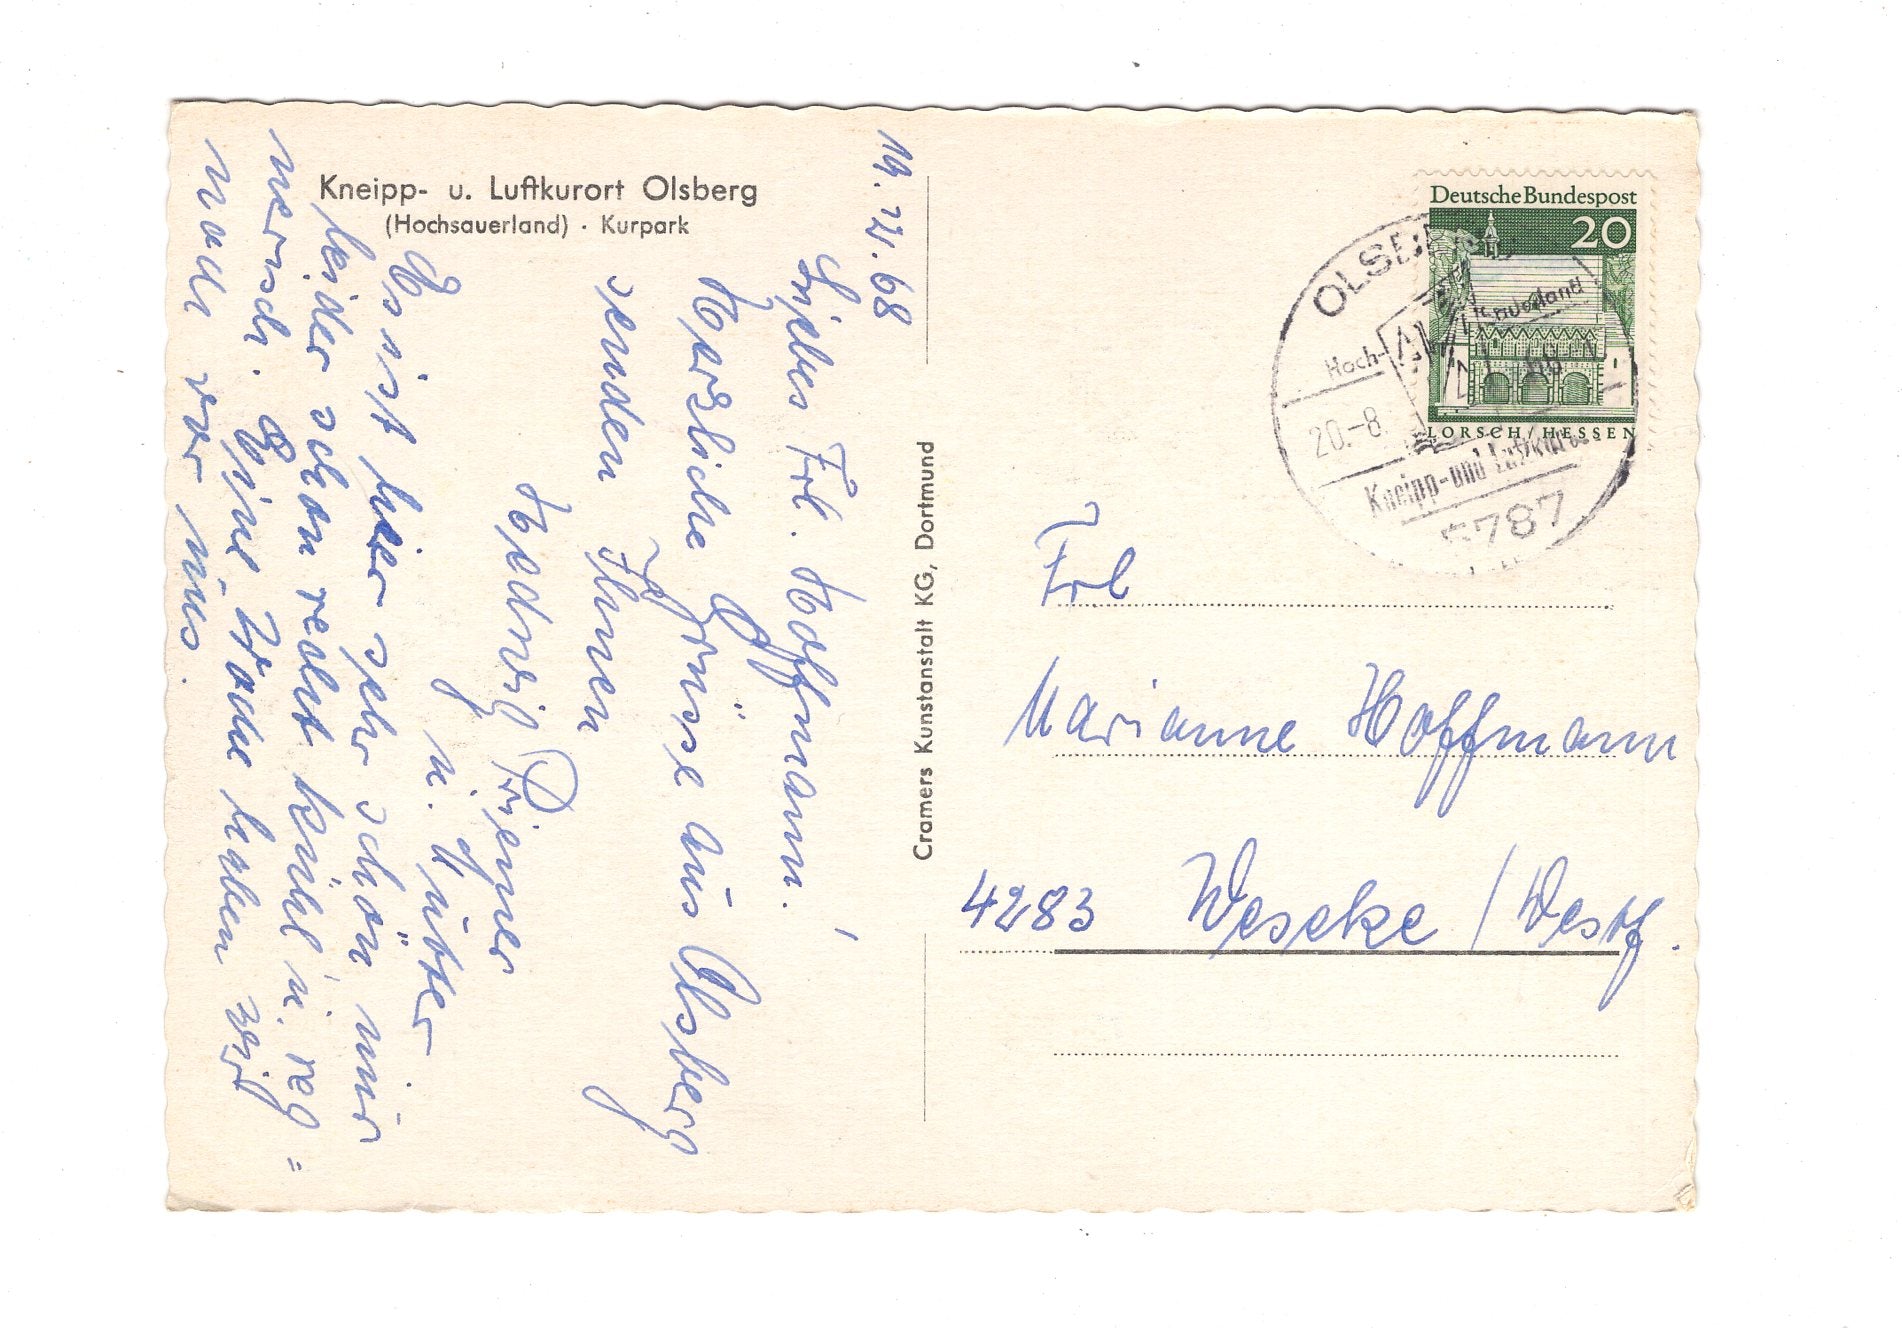 Kneipp- u. Luftkurort Olsberg
(Hochsauerland) · Kurpark
19. 68
Liebes Frl. Hoffmann!
Herzliche Grüsse aus Olsberg
senden Ihnen
Hedwig Driener
u. Mutter
Es ist hier sehr schön nur
leider schon recht kühl u. reg=
nerisch. Eine Woche haben wir
noch vor uns.
Cramers Kunstanstalt KG, Dortmund
Deutsche Bundespost
20
LORSCH/HESSEN
OLSBERG
Hoch- sauerland
20.-8.
Kneipp-und Luftkurort
5787
Frl
Marianne Hoffmann
4283 Weseke / Westf.